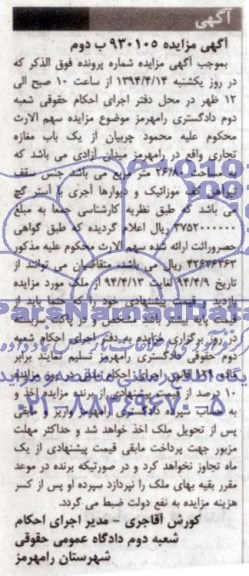 آگهی
آگهی مزایده ۹۳۰۱۰۵ ب دوم
بموجب آگهی مزایده شماره پرونده فوق الذکر که
در روز یکشنبه ۱۳۹۴/۴/۱۴ از ساعت ۱۰ صبح الی
۱۲ ظهر در محل دفتر اجرای احکام حقوقی شعبه
دوم دادگستری رامهرمز موضوع مزایده سهم الارث
محکوم علیه محمود چربیان از یک باب مغازه
تجاری واقع در رامهرمز میدان آزادی می باشد که
مساحت ۲۶/۸۰ متر مربع می باشد جنس سقف
موزائیک و دیوارها آجری با آستر گچ
می باشد که طبق نظریه کارشناسی جمعا به مبلغ
۳۷۵۲۰۰۰۰۰۰ ریال اعلام گردیده که طبق گواهی
حصروراثت ارائه شده سهم الارث محکوم علیه مذکور
۴۲۶۳۶۳۶۳ ریال می باشد. متقاضیان می توانند از
تاریخ ۹۴/۴/۹ لغایت ۹۴/۴/۱۳ از ملک مورد مزایده
بازدید و قیمت پیشنهادی خود را که حتما باید از
پایه بیشتر باشد مشخص و در پاکت سربسته
در روز برگزاری مزایده به دفتر اجرای احکام شعبه
دوم حقوقی دادگستری رامهرمز تسلیم نمایند برابر
ماده ۱۲۹ قانون اجرای احکام مدنی در روز مزایده
۱۰ درصد از قیمت پیشنهادی از برنده مزایده اخذ و
به حساب سپرده دادگستری رامهرمز واریز و مابقی
پس از تحویل ملک اخذ خواهد شد و حداکثر مهلت
مزبور جهت پرداخت مابقی قیمت پیشنهادی از یک
ماه تجاوز نخواهد کرد و در صورتیکه برنده در موعد
مقرر بقیه بهای ملک را نپردازد سپرده او پس از کسر
هزینه مزایده به نفع دولت ضبط می گردد.
کورش آقاجری - مدیر اجرای احکام
شعبه دوم دادگاه عمومی حقوقی
شهرستان رامهرمز
ParsNamadData
۰۲۱-۸۸۳۴۹۶۷۰-۵